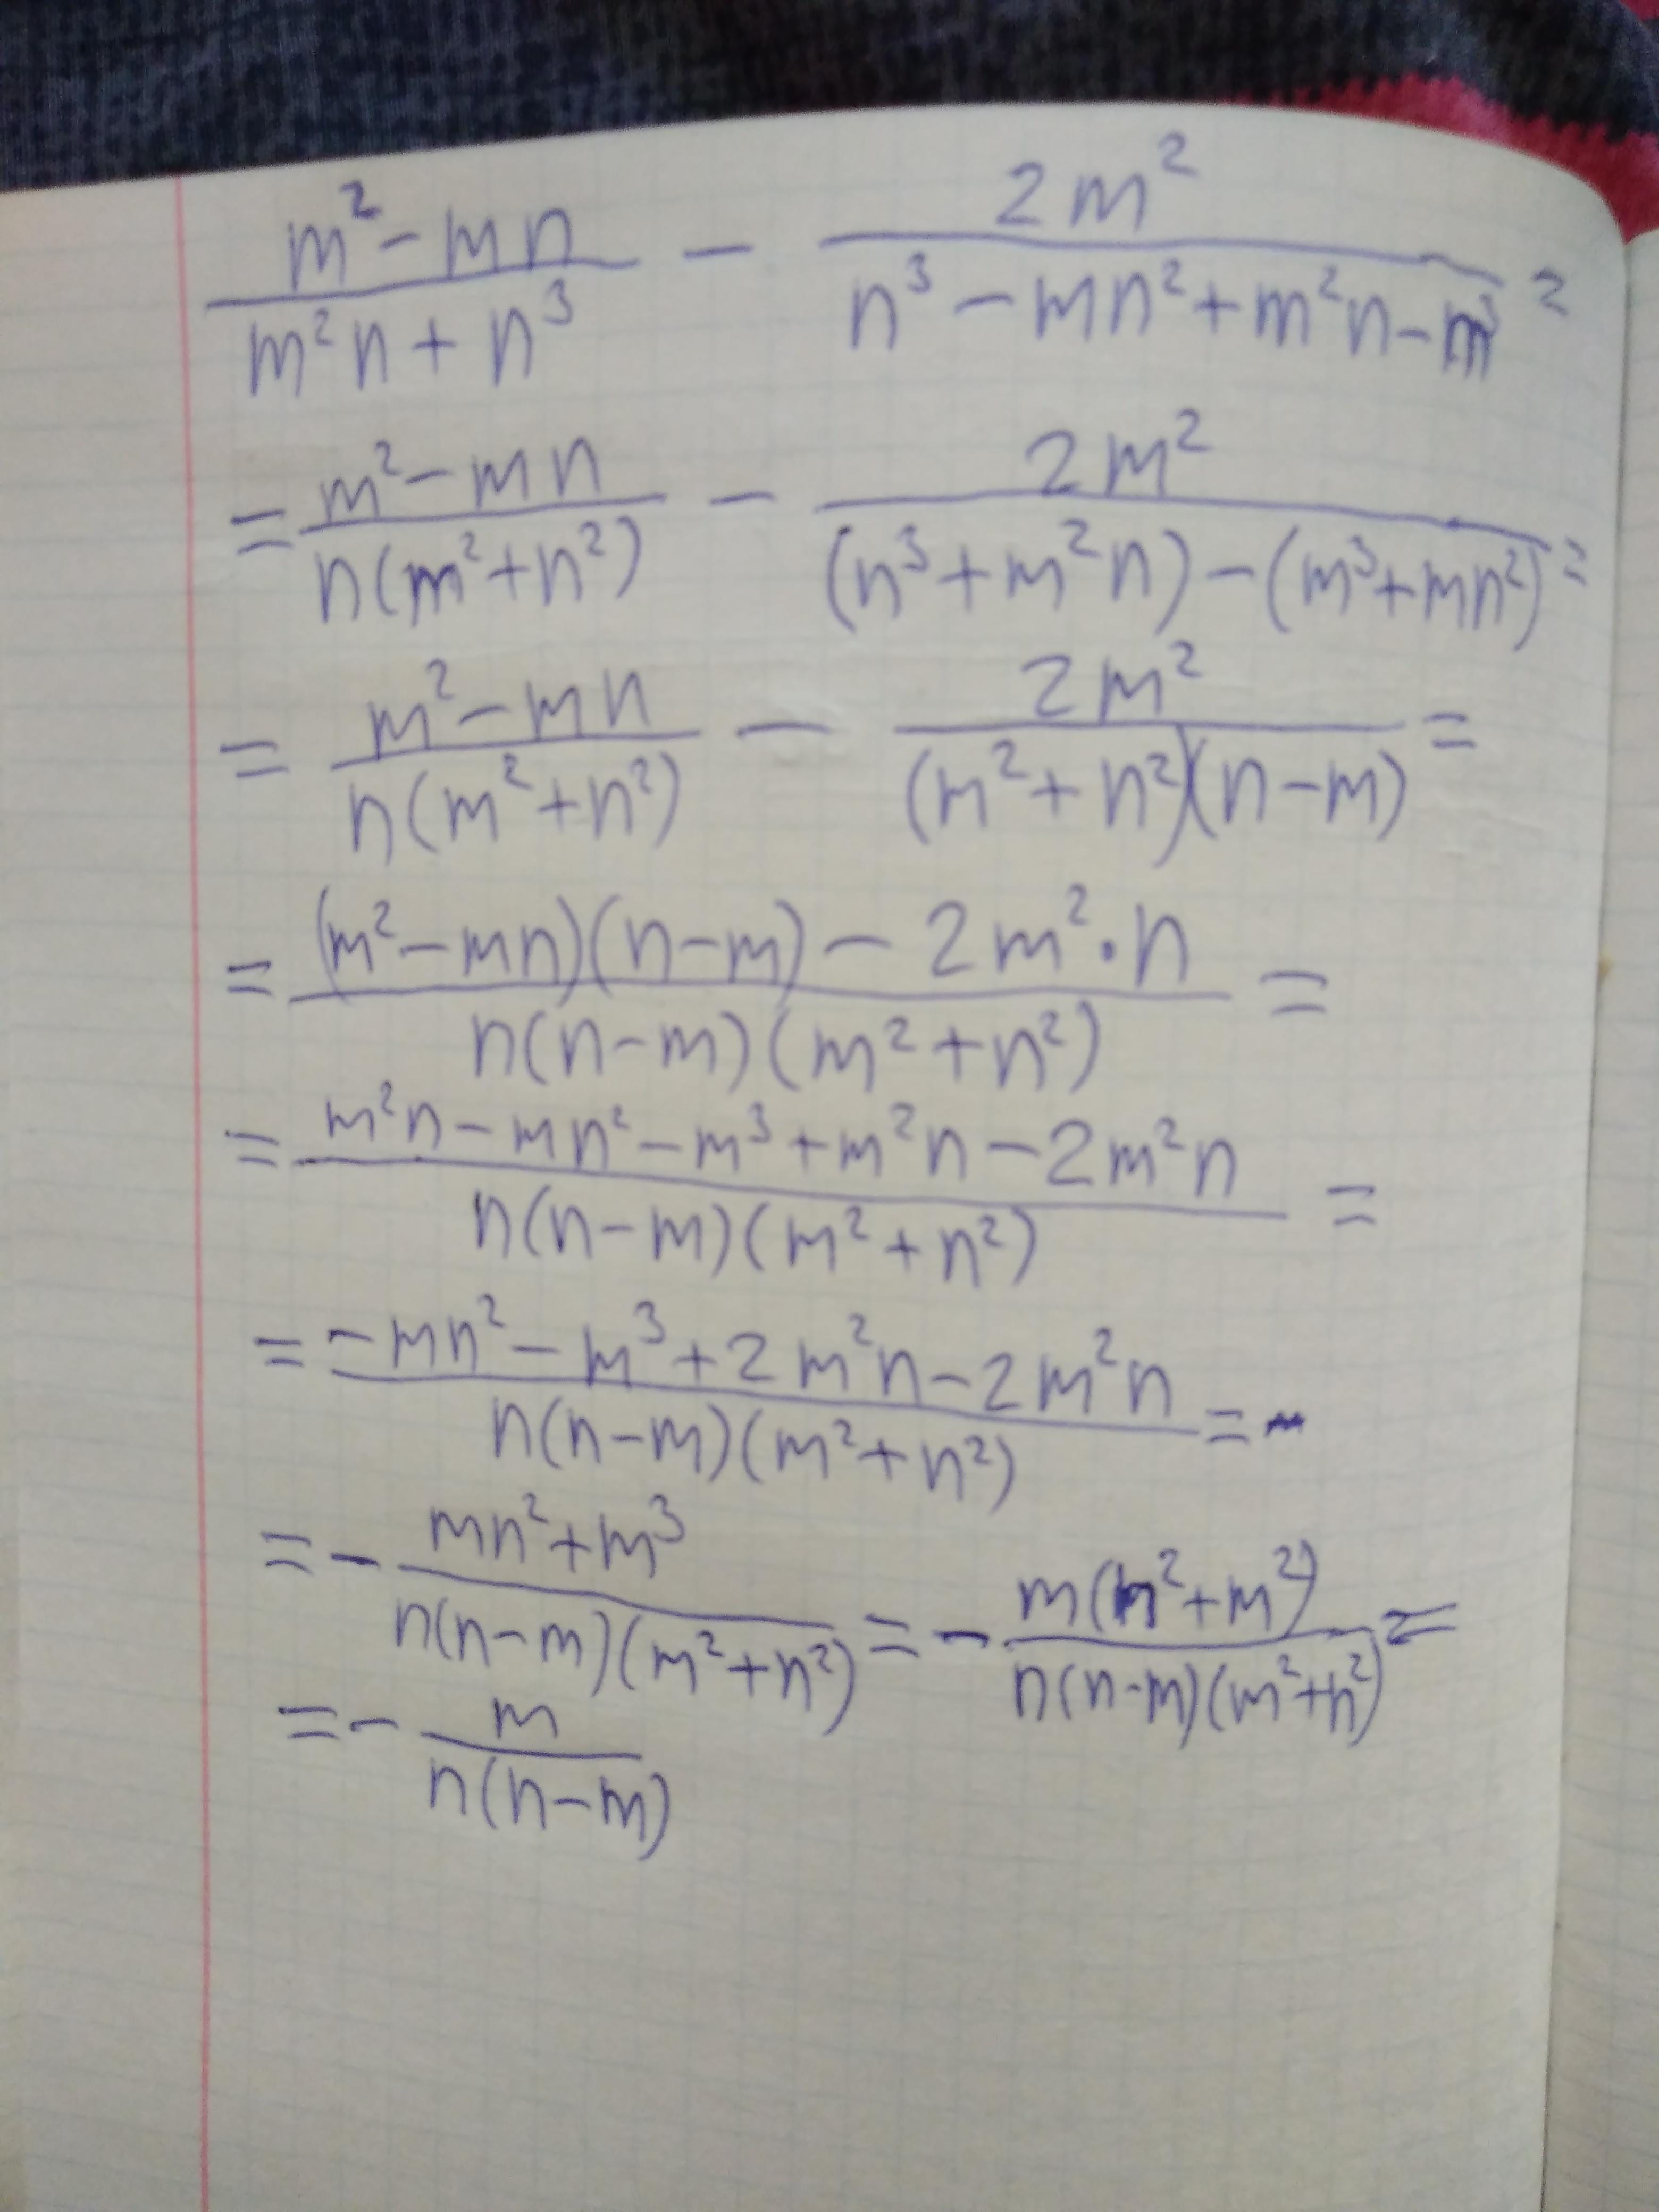 \frac{m^2-mn}{m^2n+n^3} - \frac{2m^2}{n^3-mn^2+m^2n-m^3} =
= \frac{m^2-mn}{n(m^2+n^2)} - \frac{2m^2}{(n^3+m^2n)-(m^3+mn^2)} =
= \frac{m^2-mn}{n(m^2+n^2)} - \frac{2m^2}{(m^2+n^2)(n-m)} =
= \frac{(m^2-mn)(n-m)-2m^2 \cdot n}{n(n-m)(m^2+n^2)} =
= \frac{m^2n-mn^2-m^3+m^2n-2m^2n}{n(n-m)(m^2+n^2)} =
= \frac{-mn^2-m^3+2m^2n-2m^2n}{n(n-m)(m^2+n^2)} = -
= -\frac{mn^2+m^3}{n(n-m)(m^2+n^2)} = -\frac{m(n^2+m^2)}{n(n-m)(m^2+n^2)} =
= -\frac{m}{n(n-m)}